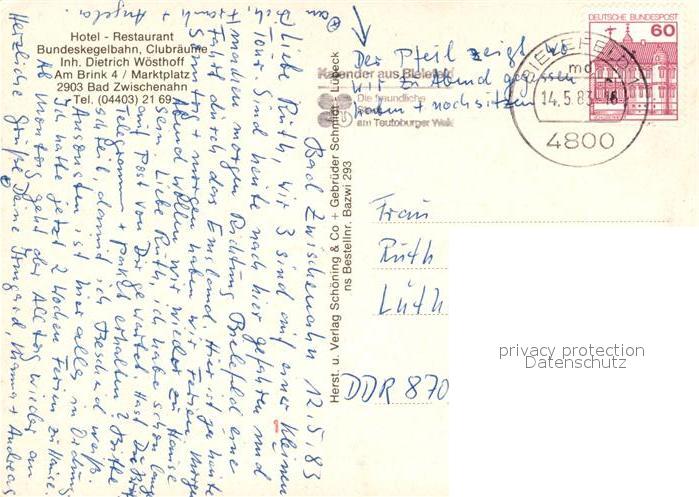 Hotel - Restaurant
Bundeskegelbahn, Clubräume
Inh. Dietrich Wösthoff
Am Brink 4 / Marktplatz
2903 Bad Zwischenahn
Tel. (04403) 21 69
Herst. u. Verlag Schöning & Co + Gebrüder Schmidt - Lübeck
Bestellnr. Bazwi 293
Der Pfeil zeigt wo
wir zu Abend gegessen
haben + noch sitzen
Kalender aus Bielefeld
Die freundliche
am Teutoburger Wald
DEUTSCHE BUNDESPOST
60
BIELEFELD
14.5.83
4800
Bad Zwischenahn 12.5.83
Liebe Ruth, wir 3 sind auf einer kleinen
Tour. Sind heute nach hier gefahren und
machen morgen Richtung Bielefeld eine
Fahrt durch das Emsland. Hier ist ja heute
+ morgen haben wir Ferien. Morgen
Abend wollen wir wieder zu Hause
sein. Liebe Ruth, ich habe schon lange
auf Post von Dir gewartet. Hast Du
Telegramm + Paket erhalten? Bitte
damit ich Bescheid weiß.
Ansonsten ist hier alles in Ordnung
Ich hatte jetzt 2 Wochen Ferien zu Hause.
Ab Montag geht der Alltag wieder an
Herzliche Grüße Deine Irmgard, + Andreas
+ Angela.
Frau
Ruth
Luth
DDR 870
privacy protection
Datenschutz